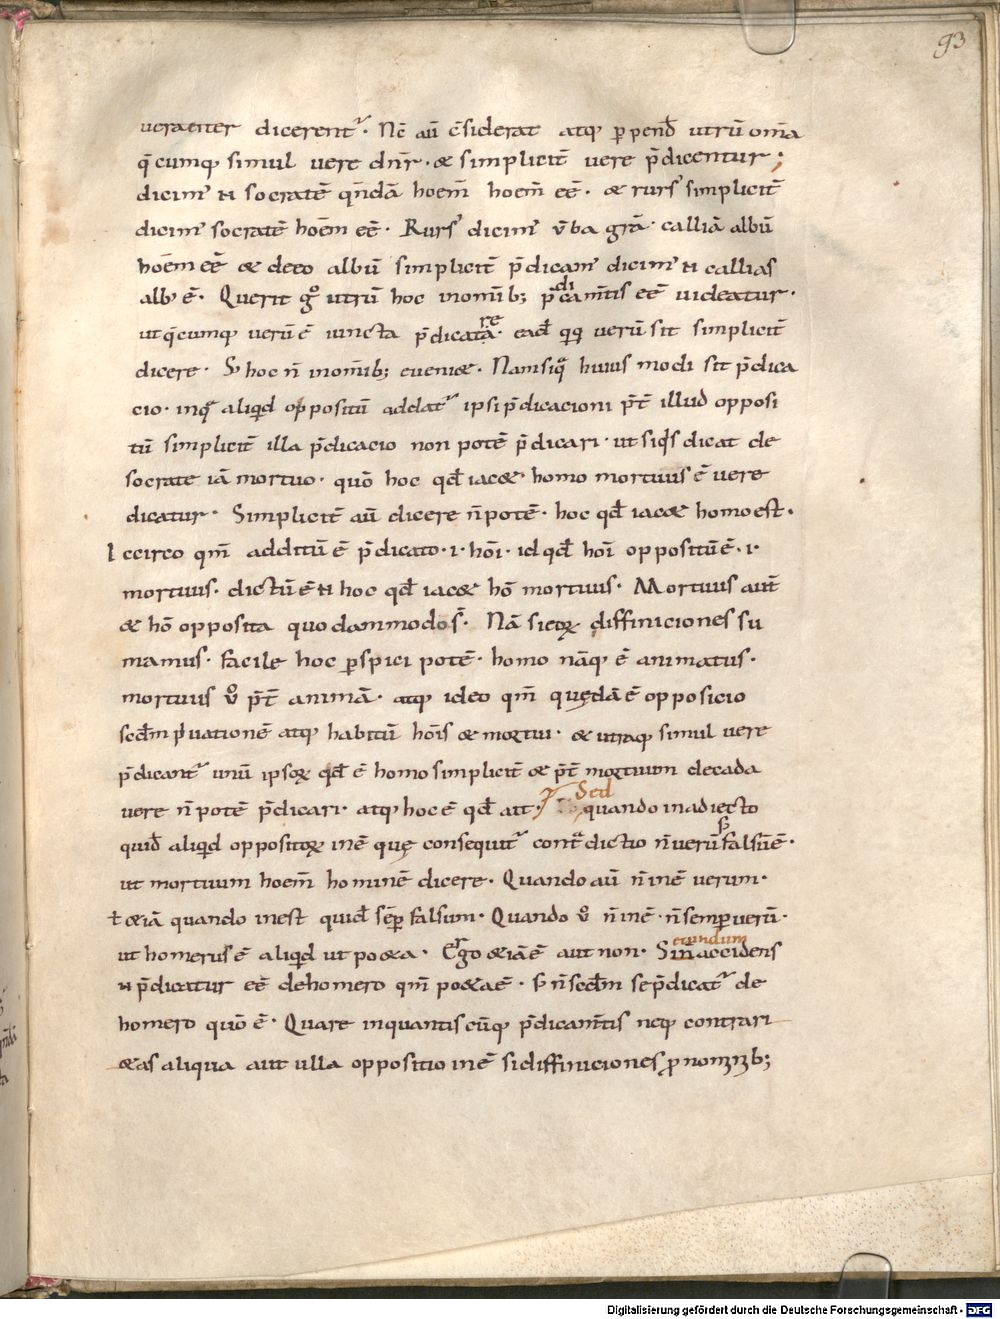 93
veraciter dicerent᷑. Nc̄ aū c̄siderat atq; ꝑpend̄ utrū om̄a
q̄cumq; simul vere dn̄r. & simplicit̄ vere p̄dicentur;
dicim᾽ ñ socratē qn̄dā hoem̄ hoem̄ eē. & rurs᾽ simplicit̄
dicim᾽ socratē hoēm eē. Rurs᾽ dicim᾽ v̄ba grā. calliā albū
hoēm eē & deeo albū simplicit̄ p̄dicam᾽ dicim᾽ ñ callias
alb᾽ ē. Querit gͦ utrū hoc inomīb; p̄dicam̄tis eē videatur.
ut q̄cumq; verū ē iuncta p̄dicarētā. ead̄ verū sit simplicit̄
dicere. S; hoc n̄ inomīb; eveni&. Namsiq̄ huius modi sit p̄dica
cio. inq᾽ aliqid oppositū addat᷑ ipsi p̄dicacioni p̄t̄ illud opposi
tū simplicit̄ illa p̄dicacio non potē p̄dicari. ut siqis dicat de
socrate iā mortuo. quō hoc qd̄ iac& homo mortuus ē vere
dicatur. Simplicit̄ aū dicere n̄ potē. hoc qd̄ iac& homo est.
Iccirco qm̄ additū ē p̄dicato. i. hōi. id qd̄ hōi oppositū ē. i.
mortuus. dictū ē ñ hoc qd̄ iac& hō mortuus. Mortuus aut̄
& hō opposita quodammodo s̄. Nā si eoꝝ diffiniciones su
mamus. facile hoc ꝑspici potē. homo nāq; ē animatus.
mortuus vͦ p̄t̄ animā. atq; ideo qm̄ quędā ē opposicio
scdm̄ pͥvationē atq; habitū hoīs & mortui. & utraq; simul vere
p̄dicant᷑ unū ipsoꝝ qd̄ ē homo simplicit̄ & p̄t̄ mortuum decada
vere n̄ potē p̄dicari. atq; hoc ē qd̄ ait. Sed quando inadiecto
quid̄ aliqid oppositoꝝ inē quę consequit᷑ contͣdictio n̄ verū s; falsū ē.
ut mortuum hoem̄ hominē dicere. Quando aū n̄ inē verum.
ł &iā quando inest quid̄ sēp falsum. Quando vͦ n̄ inē. n̄ semꝑ verū.
ut homerus ē aliqid ut po&a. Ergo &iā ē aut non. Secundum accidens
ñ p̄dicatur eē de homero qm̄ po&a ē. s; n̄ scdm̄ se p̄dicat᷑ de
homero quō ē. Quare inquantiscūq; p̄dicam̄tis neq; contrari
&as aliqua aut ulla oppositio inē si diffiniciones ꝓ nominib;
Digitalisierung gefördert durch die Deutsche Forschungsgemeinschaft - DFG